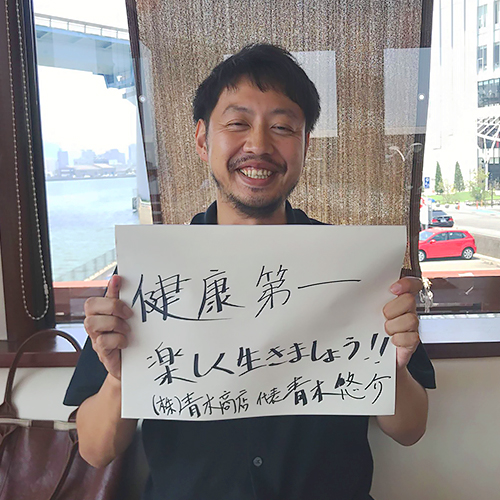 健康第一
楽しく生きましょう!!
(株)青木商店 代表 青木悠介